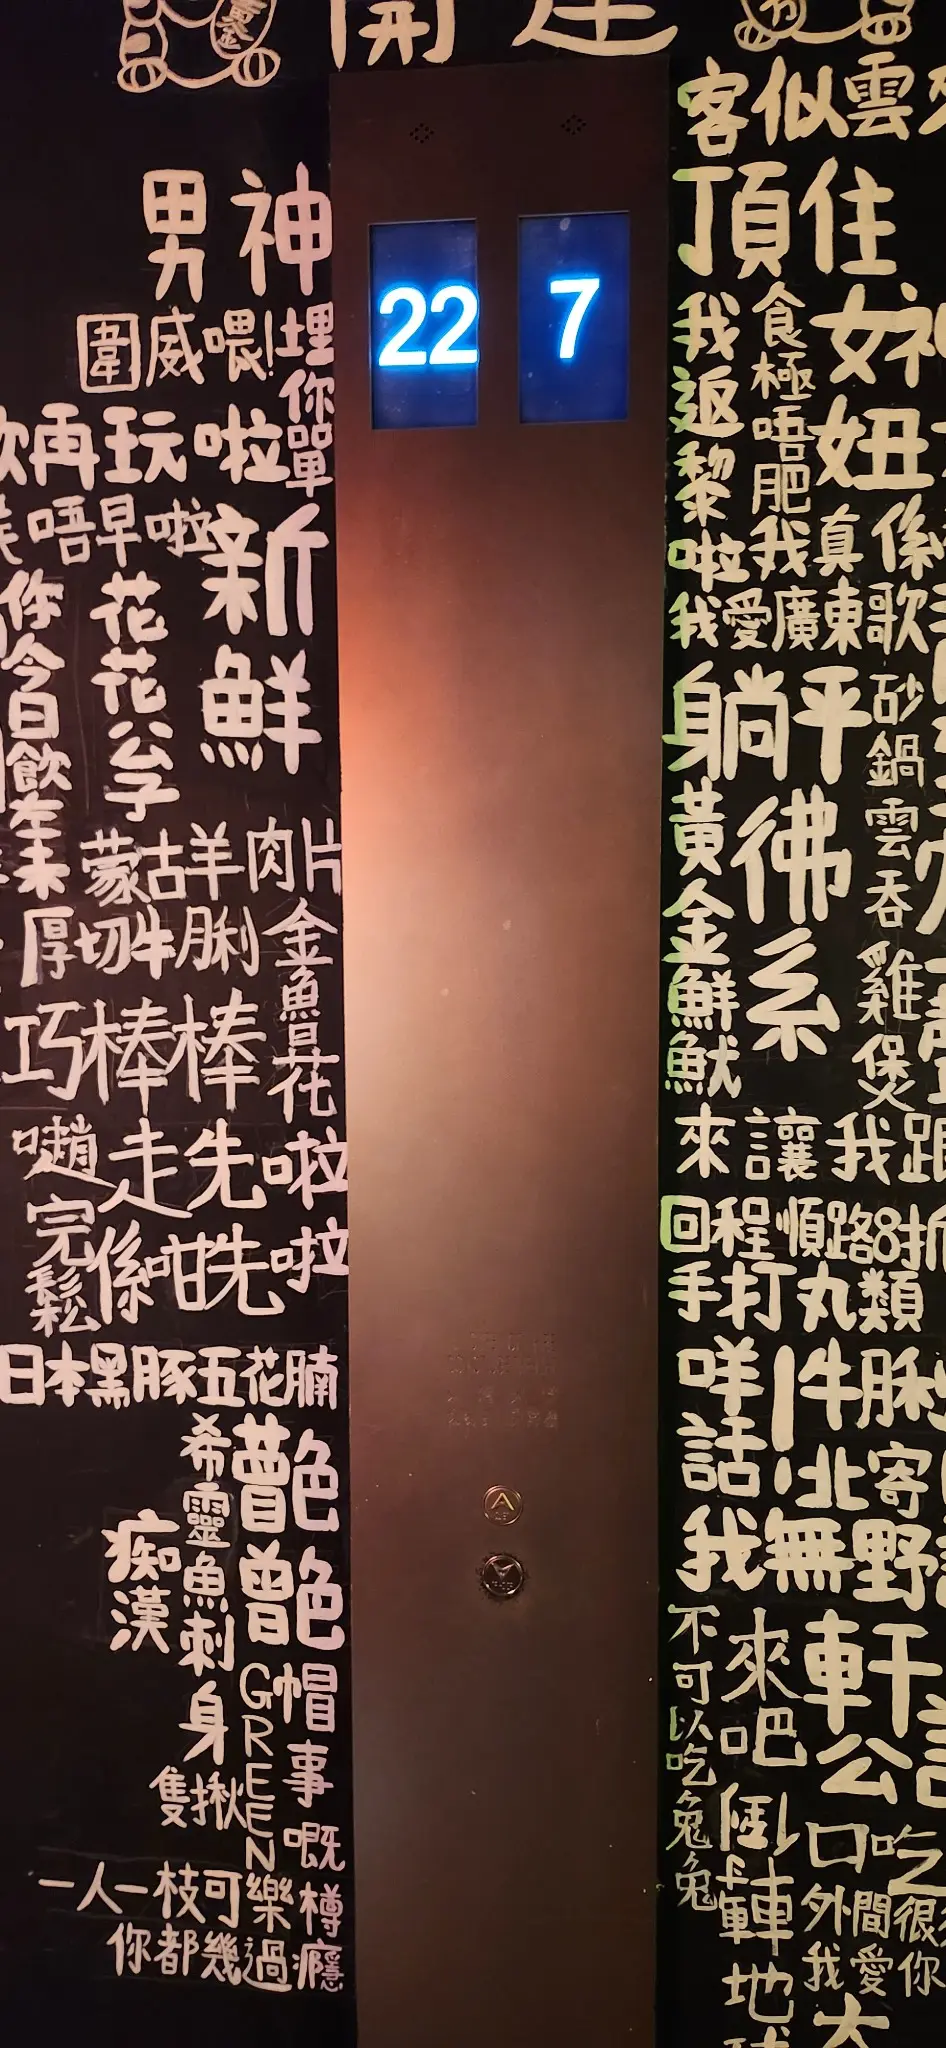 開運
神男
22
7
埋你單
圍威喂!
再玩啦
唔早啦
新鮮
你今日飲左未
花花公子
蒙古羊肉片
厚切牛脷
金魚
花
巧棒棒
走先啦
完鬆
係咁先啦
日本黑豚五花腩
艷艷
希靈魚刺身
痴漢
GREEN
帽事
隻揪
嘅
一人一枝可樂樽
你都幾過癮
客似雲
頂住
我返黎啦
食極唔肥
女神
妞
我真係
我愛廣東歌
躺平
彿系
砂鍋雲吞雞煲
黃金鮮魷
來讓我跟
回程順路8折
手打丸類
咩話
牛脷
北寄
我無野
不可以吃兔兔
來吧
軒公
口吃
轉地球
外間很
我愛你